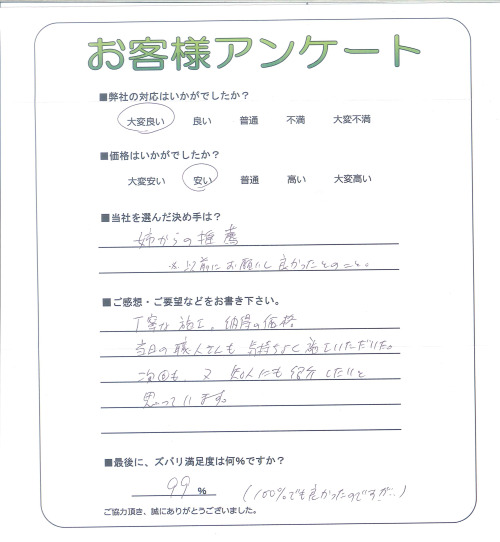 お客様アンケート
■弊社の対応はいかがでしたか？
大変良い 良い 普通 不満 大変不満
■価格はいかがでしたか？
大変安い 安い 普通 高い 大変高い
■当社を選んだ決め手は？
姉からの推薦
※以前にお願いし良かったとのこと。
■ご感想・ご要望などをお書き下さい。
丁寧な施工。納得の価格
当日の職人さんも気持ちよく施工いただいた。
次回も、又知人にも紹介したいと
思っています。
■最後に、ズバリ満足度は何％ですか？
99 % (100%でも良かったのですが…)
ご協力頂き、誠にありがとうございました。